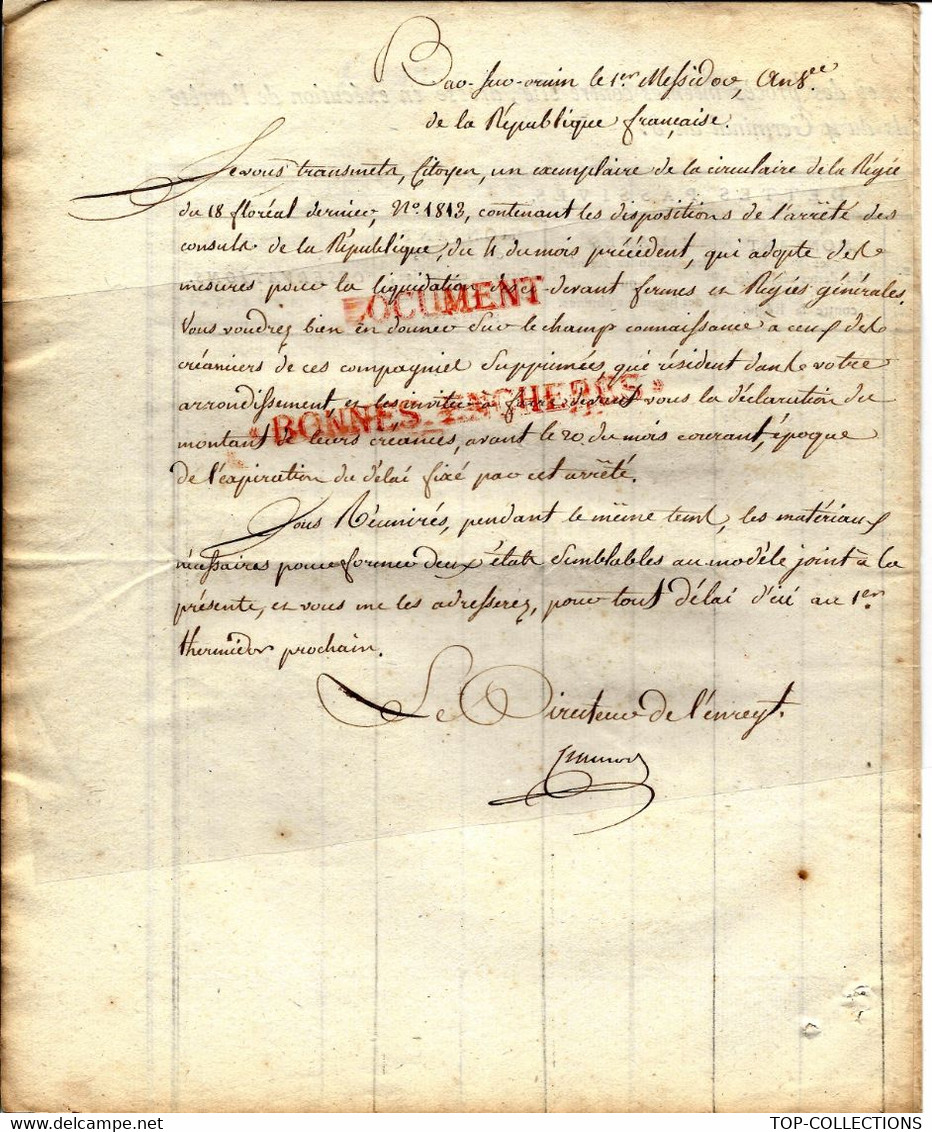 Bar-sur-ornin le 1er Messidor, An 8ee
de la République française
Je vous transmets, Citoyen, un exemplaire de la circulaire de la Régie
du 18 floréal dernier, No. 1813, contenant les dispositions de l'arrêté des
consuls de la République, du 4 du mois précédent, qui adopte des
mesures pour la liquidation des ci-devant fermes et Régies générales.
DOCUMENT
Vous voudrez bien en donner sur le champ connaissance à ceux des
créanciers de ces compagnies supprimées, qui résident dans votre
arrondissement, et les inviter à faire devant vous la déclaration du
"BONNES ENCHERES"
montant de leurs créances, avant le 20 du mois courant, époque
de l'expiration du délai fixé par cet arrêté.
Vous Réunirés, pendant le même tems, les matériaux
nécessaires pour former deux états semblables au modèle joint à la
présente, et vous me les adresserez, pour tout délai d'ici au 1er
thermidor prochain.
Le Directeur de l'enregt.
TOP-COLLECTIONS